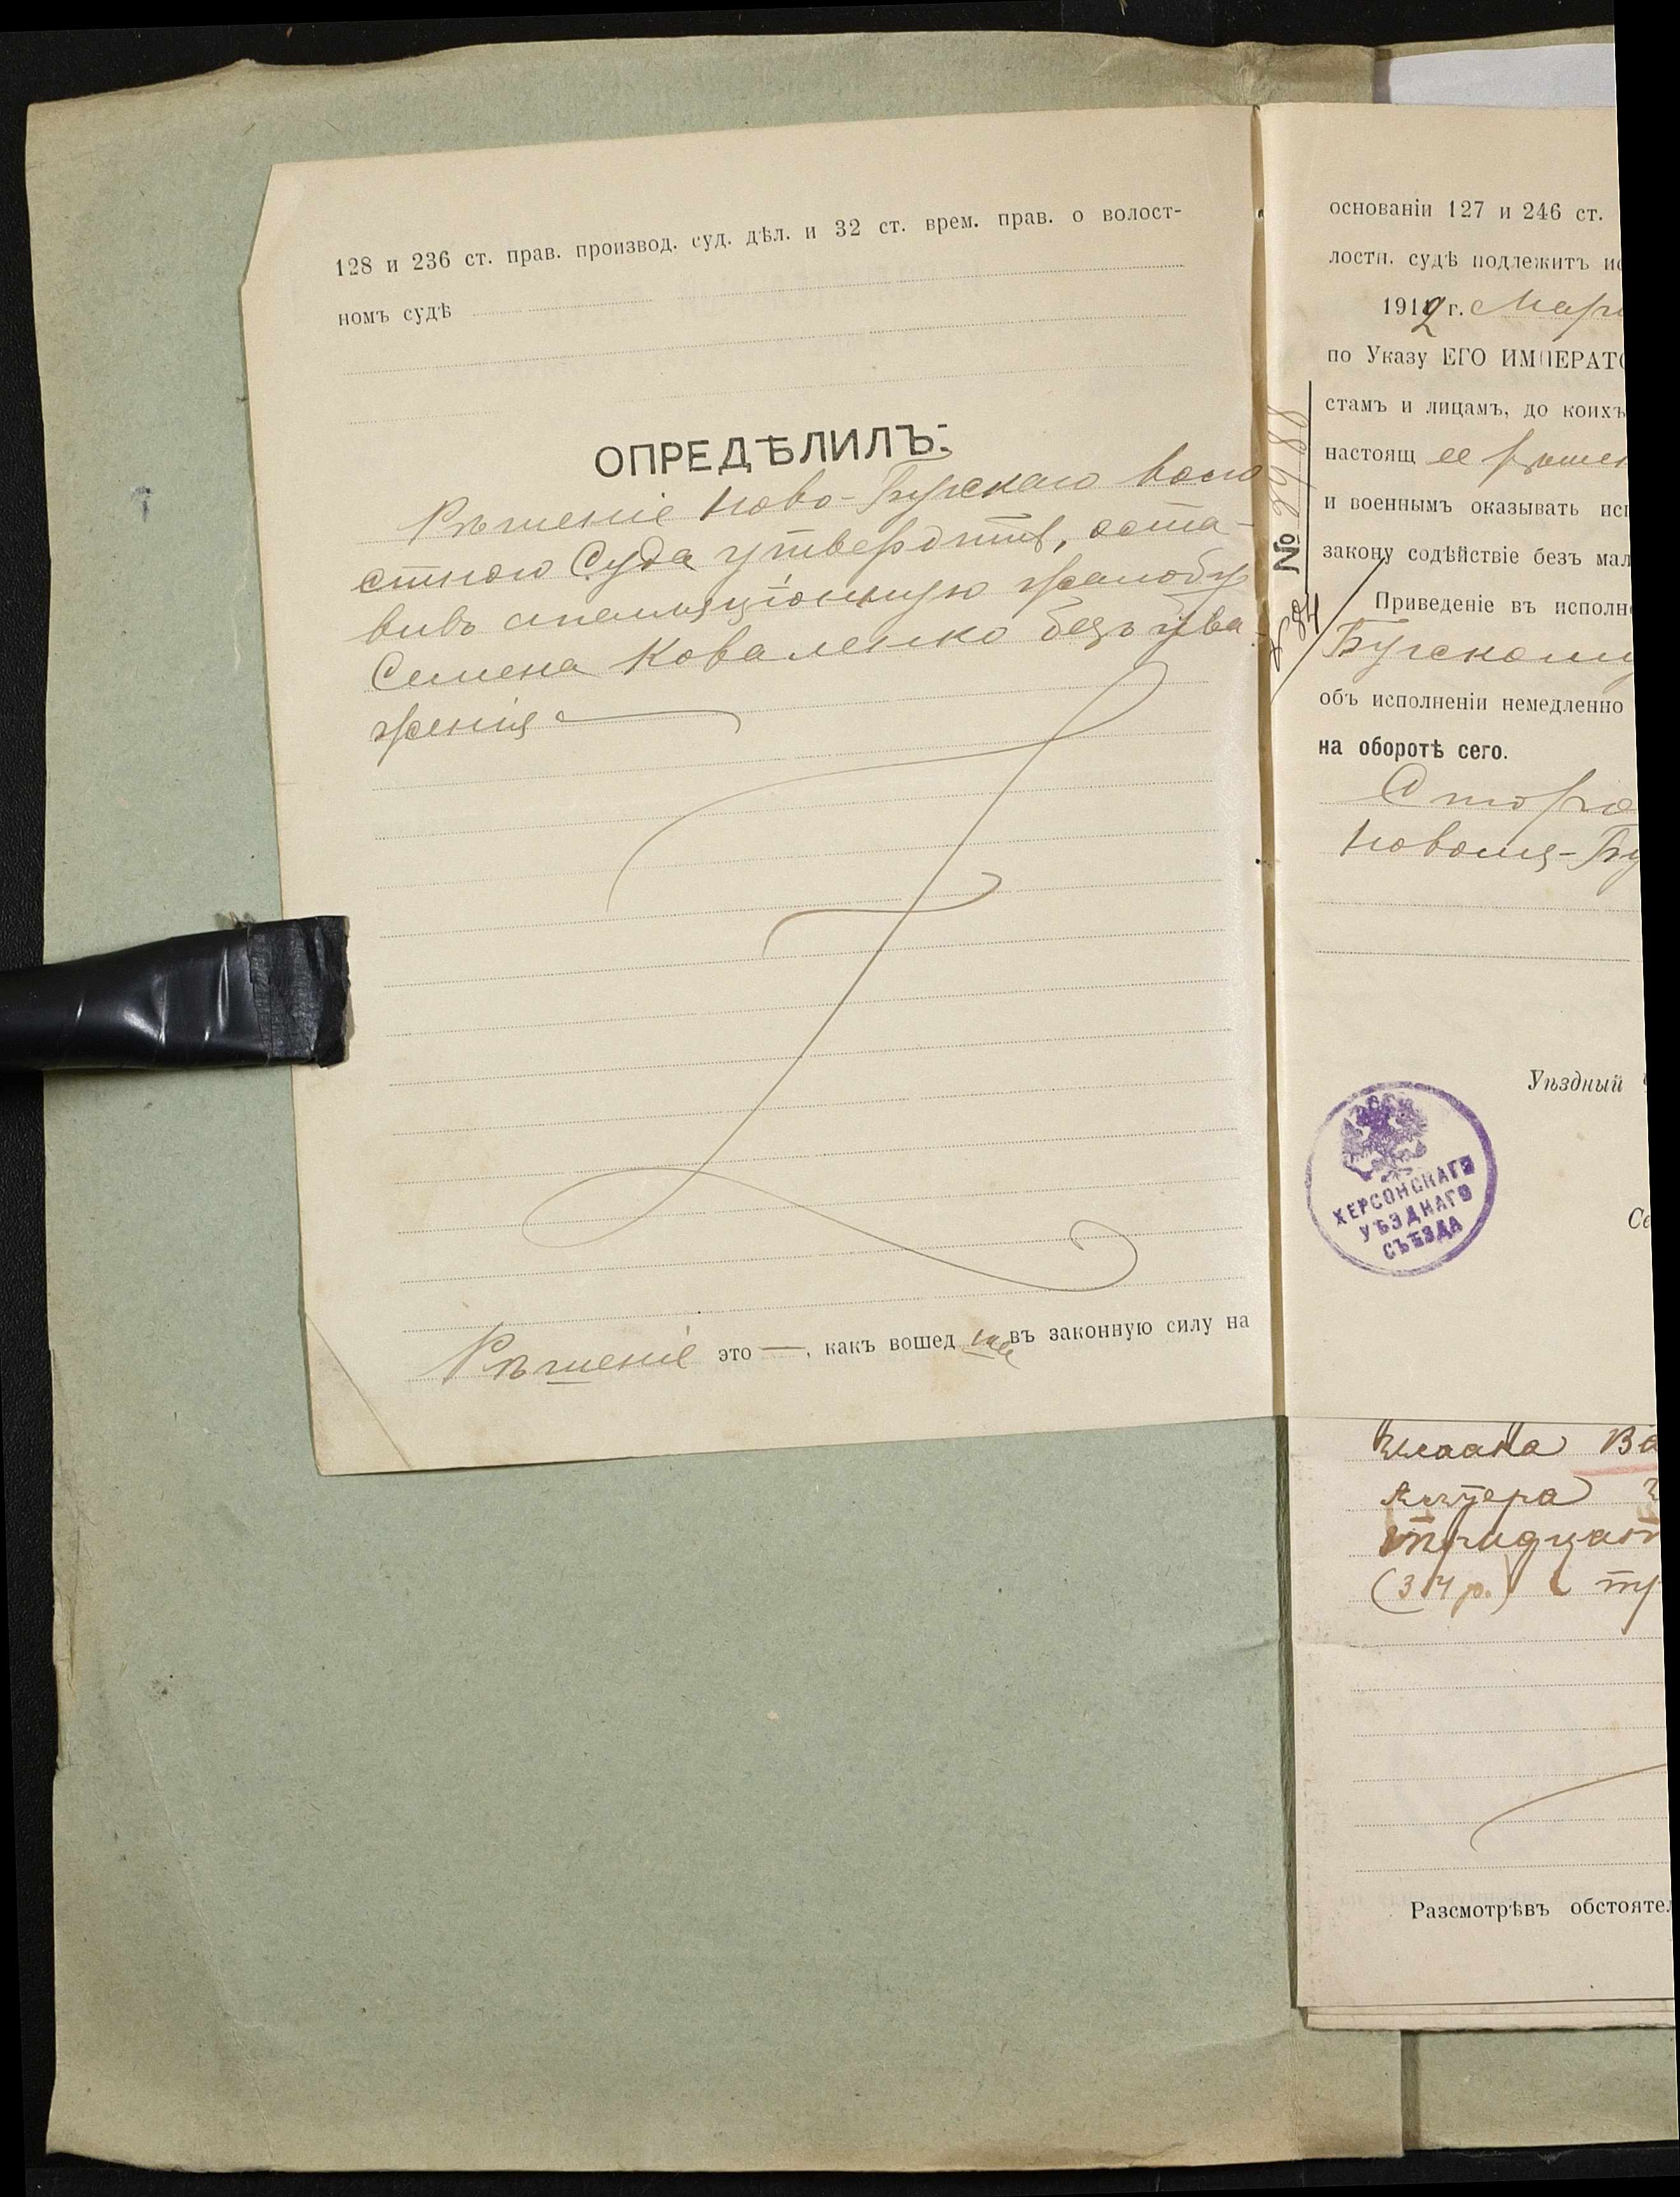 128 и 236 ст. прав. производ. суд. дѣл. и 32 ст. врем. прав. о волост-
номъ судѣ
ОПРЕДѢЛИЛЪ:
Рѣшеніе Ново-Бугскаго воло
стного Суда утвердить, оста-
вивъ апелляціонную жалобу
Семена Коваленко безъ ува-
женія
Рѣшеніе это —, какъ вошед шее въ законную силу на
основаніи 127 и 246 ст.
лостн. судѣ подлежитъ ис
1912 г. Мар
по Указу ЕГО ИМПЕРАТО
стамъ и лицамъ, до коихъ
настоящ ее рѣшен
и военнымъ оказывать исп
закону содѣйствіе безъ мал
Приведеніе въ исполне
Бугскому
объ исполненіи немедленно
на оборотѣ сего.
Ново-Бу
№
Уѣздный
ХЕРСОНСКАГО
УѢЗДНАГО
СЪѢЗДА
Се
Ва
тридцат
(34 р.)
Разсмотрѣвъ обстояте